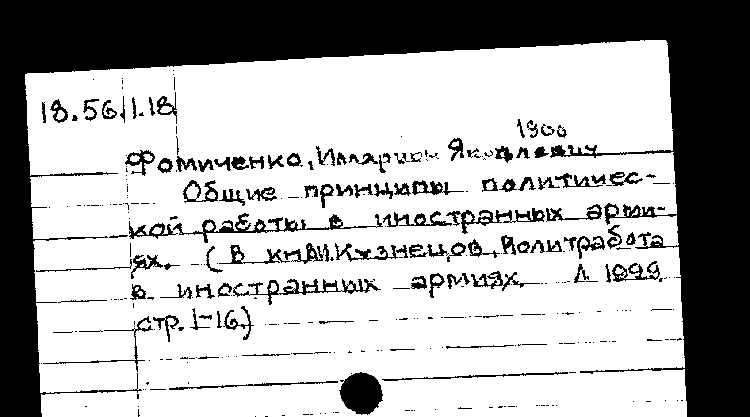 18.56.1.18
1900
Фомиченко, Илларион Яковлевич
Общие принципы политичес-
кой работы в иностранных арми-
ях. (В кн. И. Кузнецов, Политработа
в иностранных армиях. Л
стр. 1-16.)